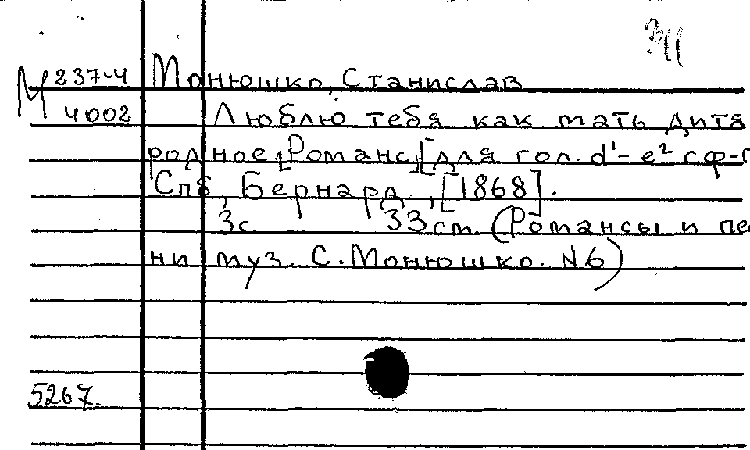 М 237-4 Монюшко, Станислав
4002 Люблю тебя как мать дитя
родное. [Романс] [Для гол. d¹-e² с ф-п
Спб, Бернард, [1868].
3с 33 cm. (Романсы и пе
ни муз. С. Монюшко. N 6)
5267